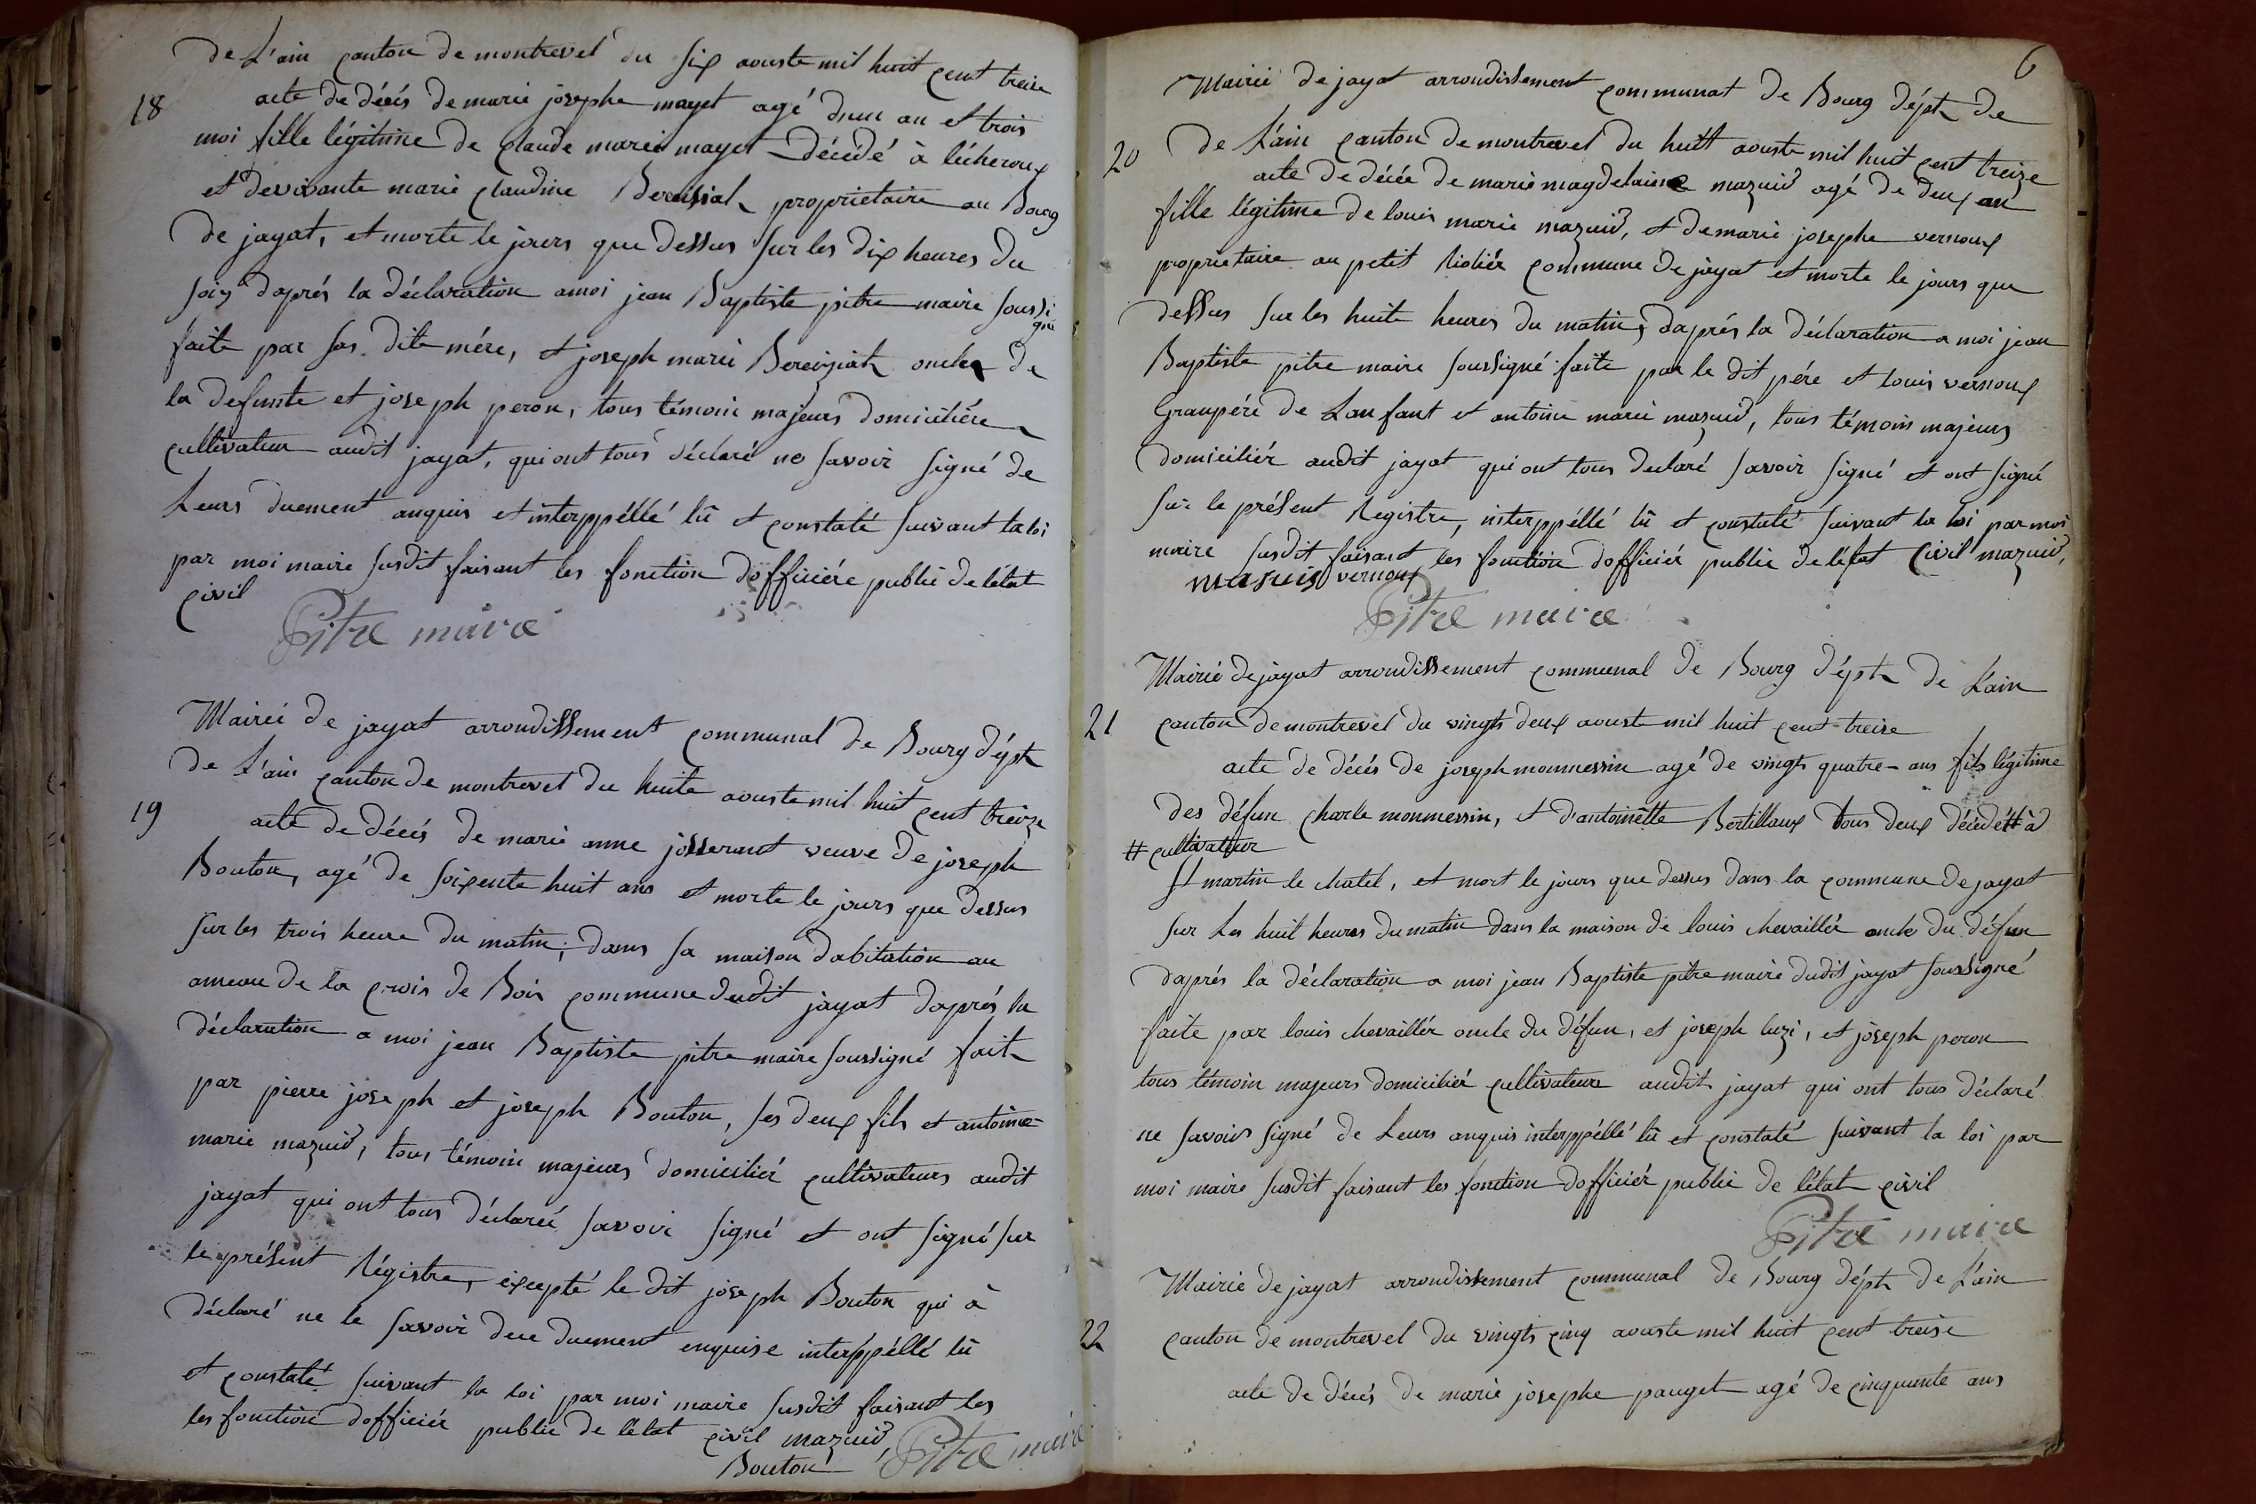 de L'ain canton de montrevel du six aouste mil huit cent treize
18
acte de décés de marie josephe mayet agé dun an et trois
moi fille légitime de claude marie mayet décédé à lécheroux
et devivante marie claudine Bereisiat propriétaire au Bourg
de jayat, et morte le jours que dessus sur les dix heures du
soir daprés la déclaration amoi jean Baptiste pitre maire soussi
gné
faite par sas dite mére, et joseph marie Bereiziat oncle de
la defunte et joseph peron, tous témoin majeurs domiciliére
cultivateur audit jayat, qui ont tous déclaré ne savoir signé de
Leurs duement anquis et interppéllé lû et constaté suivant la loi
par moi maire susdit faisant les fonction d'officiére public de létat
civil
Pitre maire
Mairie de jayat arrondissement communal de Bourg dépt
de L'ain canton de montrevel du huite aouste mil huit cent treize
19
acte de décés de marie anne josserant veuve de joseph
Bouton, agé de soixente huit ans et morte le jours que dessus
sur les trois heure du matin, dans sa maison dabitation au
ameau de la crois de Bois commune dudit jayat daprés la
déclaration a moi jean Baptiste pitre maire soussigné fait
par pierre joseph et joseph Bouton, ses deux fils et antoine
marie mazuid, tous témoin majeurs domicilié cultivateurs audit
jayat qui ont tous déclaré savoir signé et ont signé sur
le présent Régistre, éxcepté le dit joseph Bouton qui à
déclaré ne le savoir duement enquise interppéllé lû
et constaté suivant la loi par moi maire susdit faisant les
les fonction dofficiér public de létat civil mazuid
Bouton Pitre maire
6
Mairie de jayat arrondissement communat de Bourg dépt de
20
de L'ain canton de montrevel du huitt aouste mil huit cent treize
acte de décée de marie magdelaine mazuid agé de deux an
fille légitime de louis marie mazuid, et demarie josephe vernoux
propriétaire au petit Noliér commune de jayat et morte le jours que
dessus sur les huite heures du matin, daprés la déclaration a moi jean
Baptiste pitre maire soussigné faite par le dit pére et louis vernoux
Granpére de Lanfant et antoine marie mazuid, tous témoin majeurs
domiciliér audit jayat qui ont tous declaré savoir signé et ont signé
sur le présent Registre, interppéllé lû et constaté suivant la loi par moi
maire susdit faisant les fonction dofficiér public de létat civil mazuid,
masuis vernoux
Pitre maire
Mairie dejayat arrondissement communal de Bourg dépt de L'ain
21
canton de montrevel du vingts deux aouste mil huit cent treize
acte de décés de joseph monmessin agé de vingts quatre ans fils légitime
des défun charle monmessin, et d'antoinette Bertillaux tous deux décédé # à
# cultivateur
St martin le chatel, et mort le jours que dessus dans la commune de jayat
sur Les huit heures du matin dans la maison de louis chevaillér oncle du défun
daprés la déclaration a moi jean Baptiste pitre maire dudit jayat soussigné
faite par louis chevaillér oncle du défun, et joseph luzi, et joseph peron
tous témoin majeurs domicilié cultivateur audit jayat qui ont tous déclaré
ne savoir signé de Leurs anquis interppéllé lû et constaté suivant la loi par
moi maire susdit faisant les fonction dofficiér public de létat civil
Pitre maire
Mairie de jayat arrondissement communal de Bourg dépt de L'ain
22
canton de montrevel du vingts cinq aouste mil huit cent treize
acte de décés de marie josephe pauget agé de cinquante ans